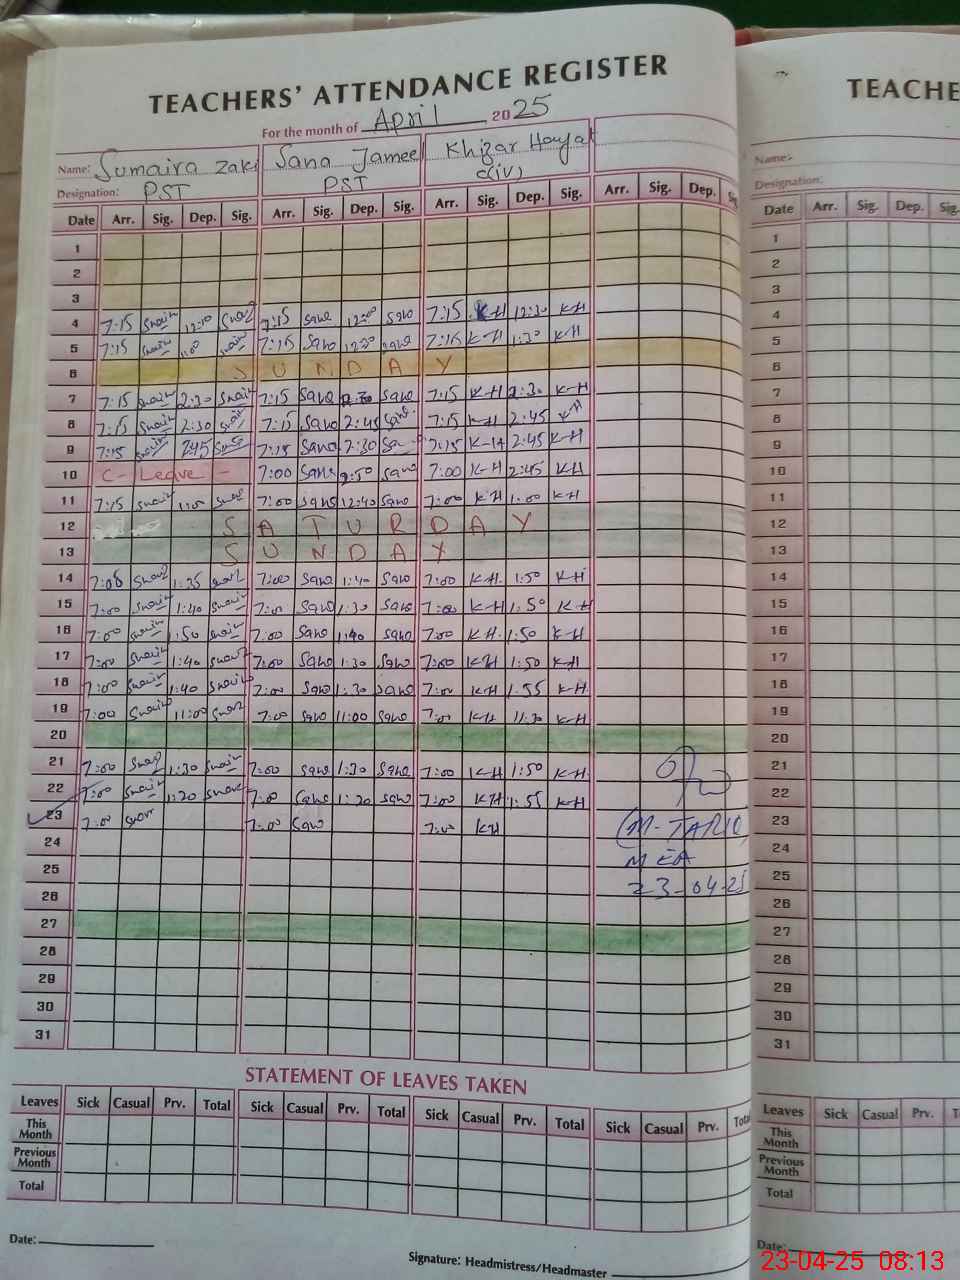 TEACHERS' ATTENDANCE REGISTER
For the month of April 2025
Name: Sumaira Zaki Sana Jameel Khizar Hayat
Designation: PST PST C(iv)
Date Arr. Sig. Dep. Sig. Arr. Sig. Dep. Sig. Arr. Sig. Dep. Sig. Arr. Sig. Dep. Sig.
1
2
3
4 7:15 12:10 7:15 Sana 12:00 Sana 7:15 KH 12:30 KH
5 7:15 1:00 7:15 Sana 12:30 Sana 7:15 KH 1:30 KH
6 SUNDAY
7 7:15 2:30 7:15 Sana 2:30 Sana 7:15 KH 2:30 KH
8 7:15 2:30 7:15 Sana 2:45 Sana 7:15 KH 2:45 KH
9 7:15 2:45 7:15 Sana 2:30 Sa 7:15 KH 2:45 KH
10 C- Leave - 7:00 Sana 2:50 Sana 7:00 KH 2:45 KH
11 7:15 1:00 7:00 Sana 12:40 Sana 7:00 KH 1:00 KH
12 SATURDAY
13 SUNDAY
14 7:08 1:35 7:00 Sana 1:40 Sana 7:00 KH. 1:50 KH
15 7:00 1:40 7:00 Sana 1:30 Sana 7:00 KH 1:50 KH
16 7:00 1:50 7:00 Sana 1:40 Sana 7:00 KH. 1:50 KH
17 7:00 1:40 7:00 Sana 1:30 Sana 7:00 KH 1:50 KH
18 7:00 1:40 7:00 Sana 1:30 Sana 7:00 KH 1:55 KH
19 7:00 11:00 7:00 Sana 11:00 Sana 7:00 KH 11:30 KH
20
21 7:00 1:30 7:00 Sana 1:30 Sana 7:00 KH 1:50 KH
22 7:00 1:20 7:00 Sana 1:20 Sana 7:00 KH 1:55 KH
23 7:00 7:00 Sana 7:00 KH (M-TARIQ)
24 MEA
25 23-04-25
26
27
28
29
30
31
STATEMENT OF LEAVES TAKEN
Leaves Sick Casual Prv. Total Sick Casual Prv. Total Sick Casual Prv. Total Sick Casual Prv. Total
This Month
Previous Month
Total
Date:
Signature: Headmistress/Headmaster
TEACHE
Name:
Designation:
Date Arr. Sig. Dep. Sig.
1
2
3
4
5
6
7
8
9
10
11
12
13
14
15
16
17
18
19
20
21
22
23
24
25
26
27
28
29
30
31
Leaves Sick Casual Prv. T
This Month
Previous Month
Total
Date:
23-04-25 08:13